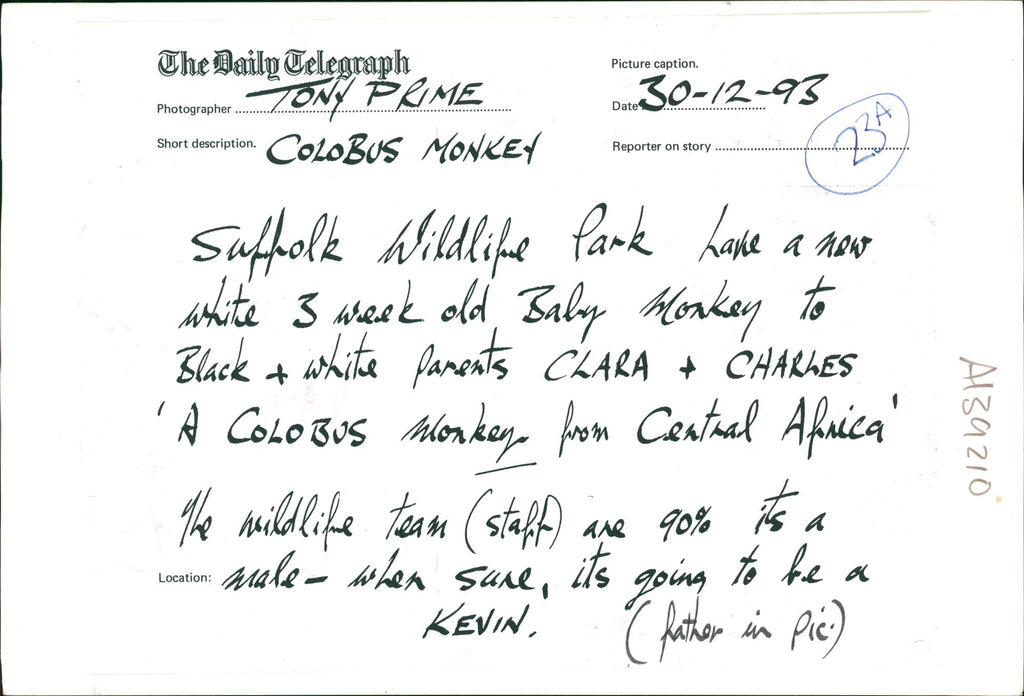 The Daily Telegraph
Picture caption.
Photographer TONY PRIME
Date 30-12-93
Short description. COLOBUS MONKEY
Reporter on story
23A
Suffolk Wildlife Park have a new
white 3 week old Baby Monkey to
Black + white Parents CLARA + CHARLES
'A COLOBUS Monkey from Central Africa'
The wildlife team (staff) are 90% its a
Location: male - when sure, its going to be a
KEVIN. (father in pic.)